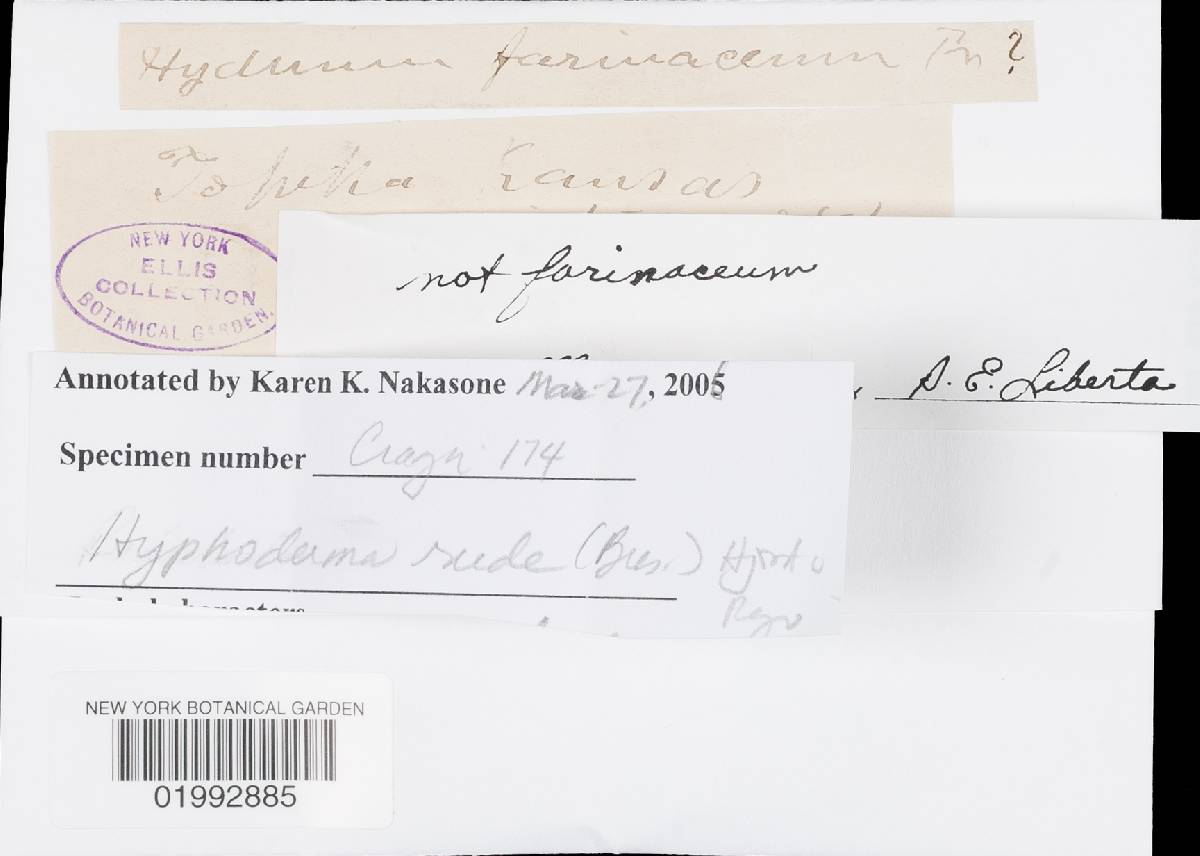 Hydnum farinaceum Fr ?
Topeka Kansas
NEW YORK
ELLIS
COLLECTION
BOTANICAL GARDEN.
not farinaceum
A. E. Liberta
Annotated by Karen K. Nakasone Mar 27, 2006
Specimen number Cragin 174
Hyphoderma rude (Bres.) Hjort &
Ryv
NEW YORK BOTANICAL GARDEN
01992885